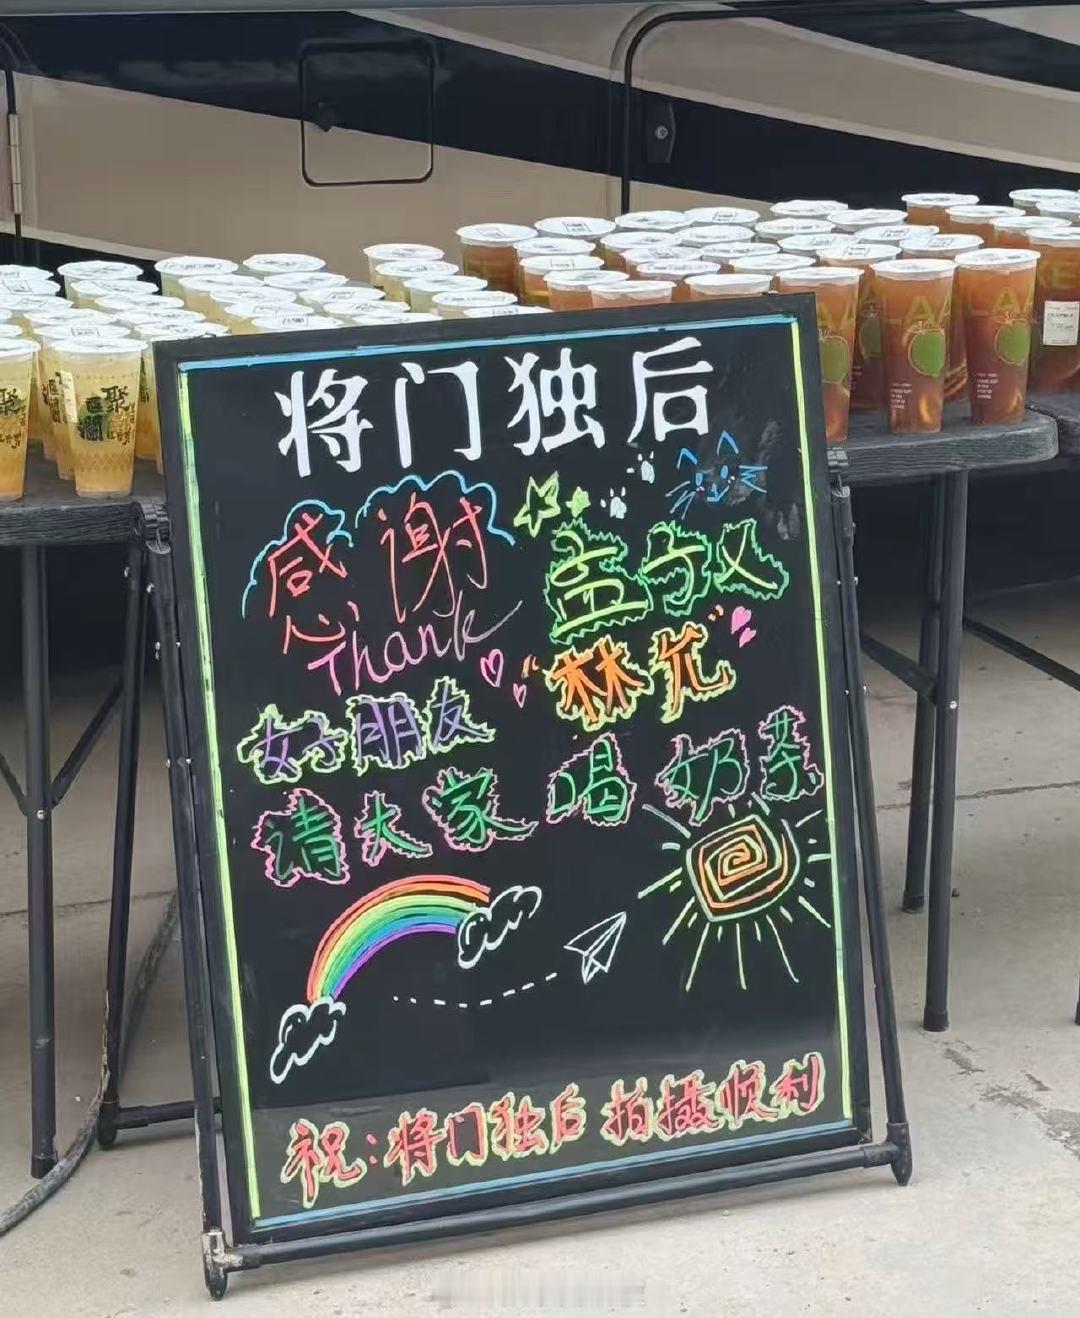 将门独后
感谢
Thank
孟子义
"林允"
好朋友
请大家喝奶茶
祝:将门独后拍摄顺利
聚